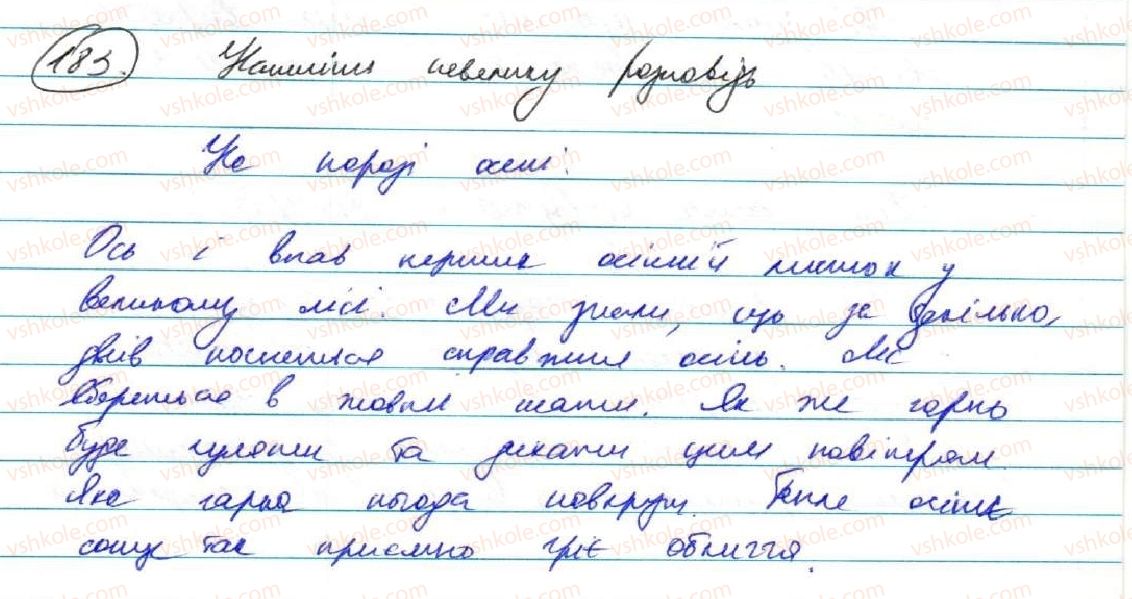 183. Напишіть невелику розповідь
На порозі осені.
Ось і впав перший осінній листок у
великому лісі. Ми знали, що за декілька
днів настане справжня осінь. Ліс
вбереться в жовті шати. Як же гарно
буде гуляти та дихати цим повітрям.
Яка гарна погода навкруги. Тепле осіннє
сонце так приємно гріє обличчя.